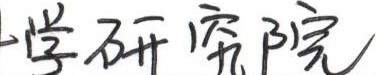 学研究院